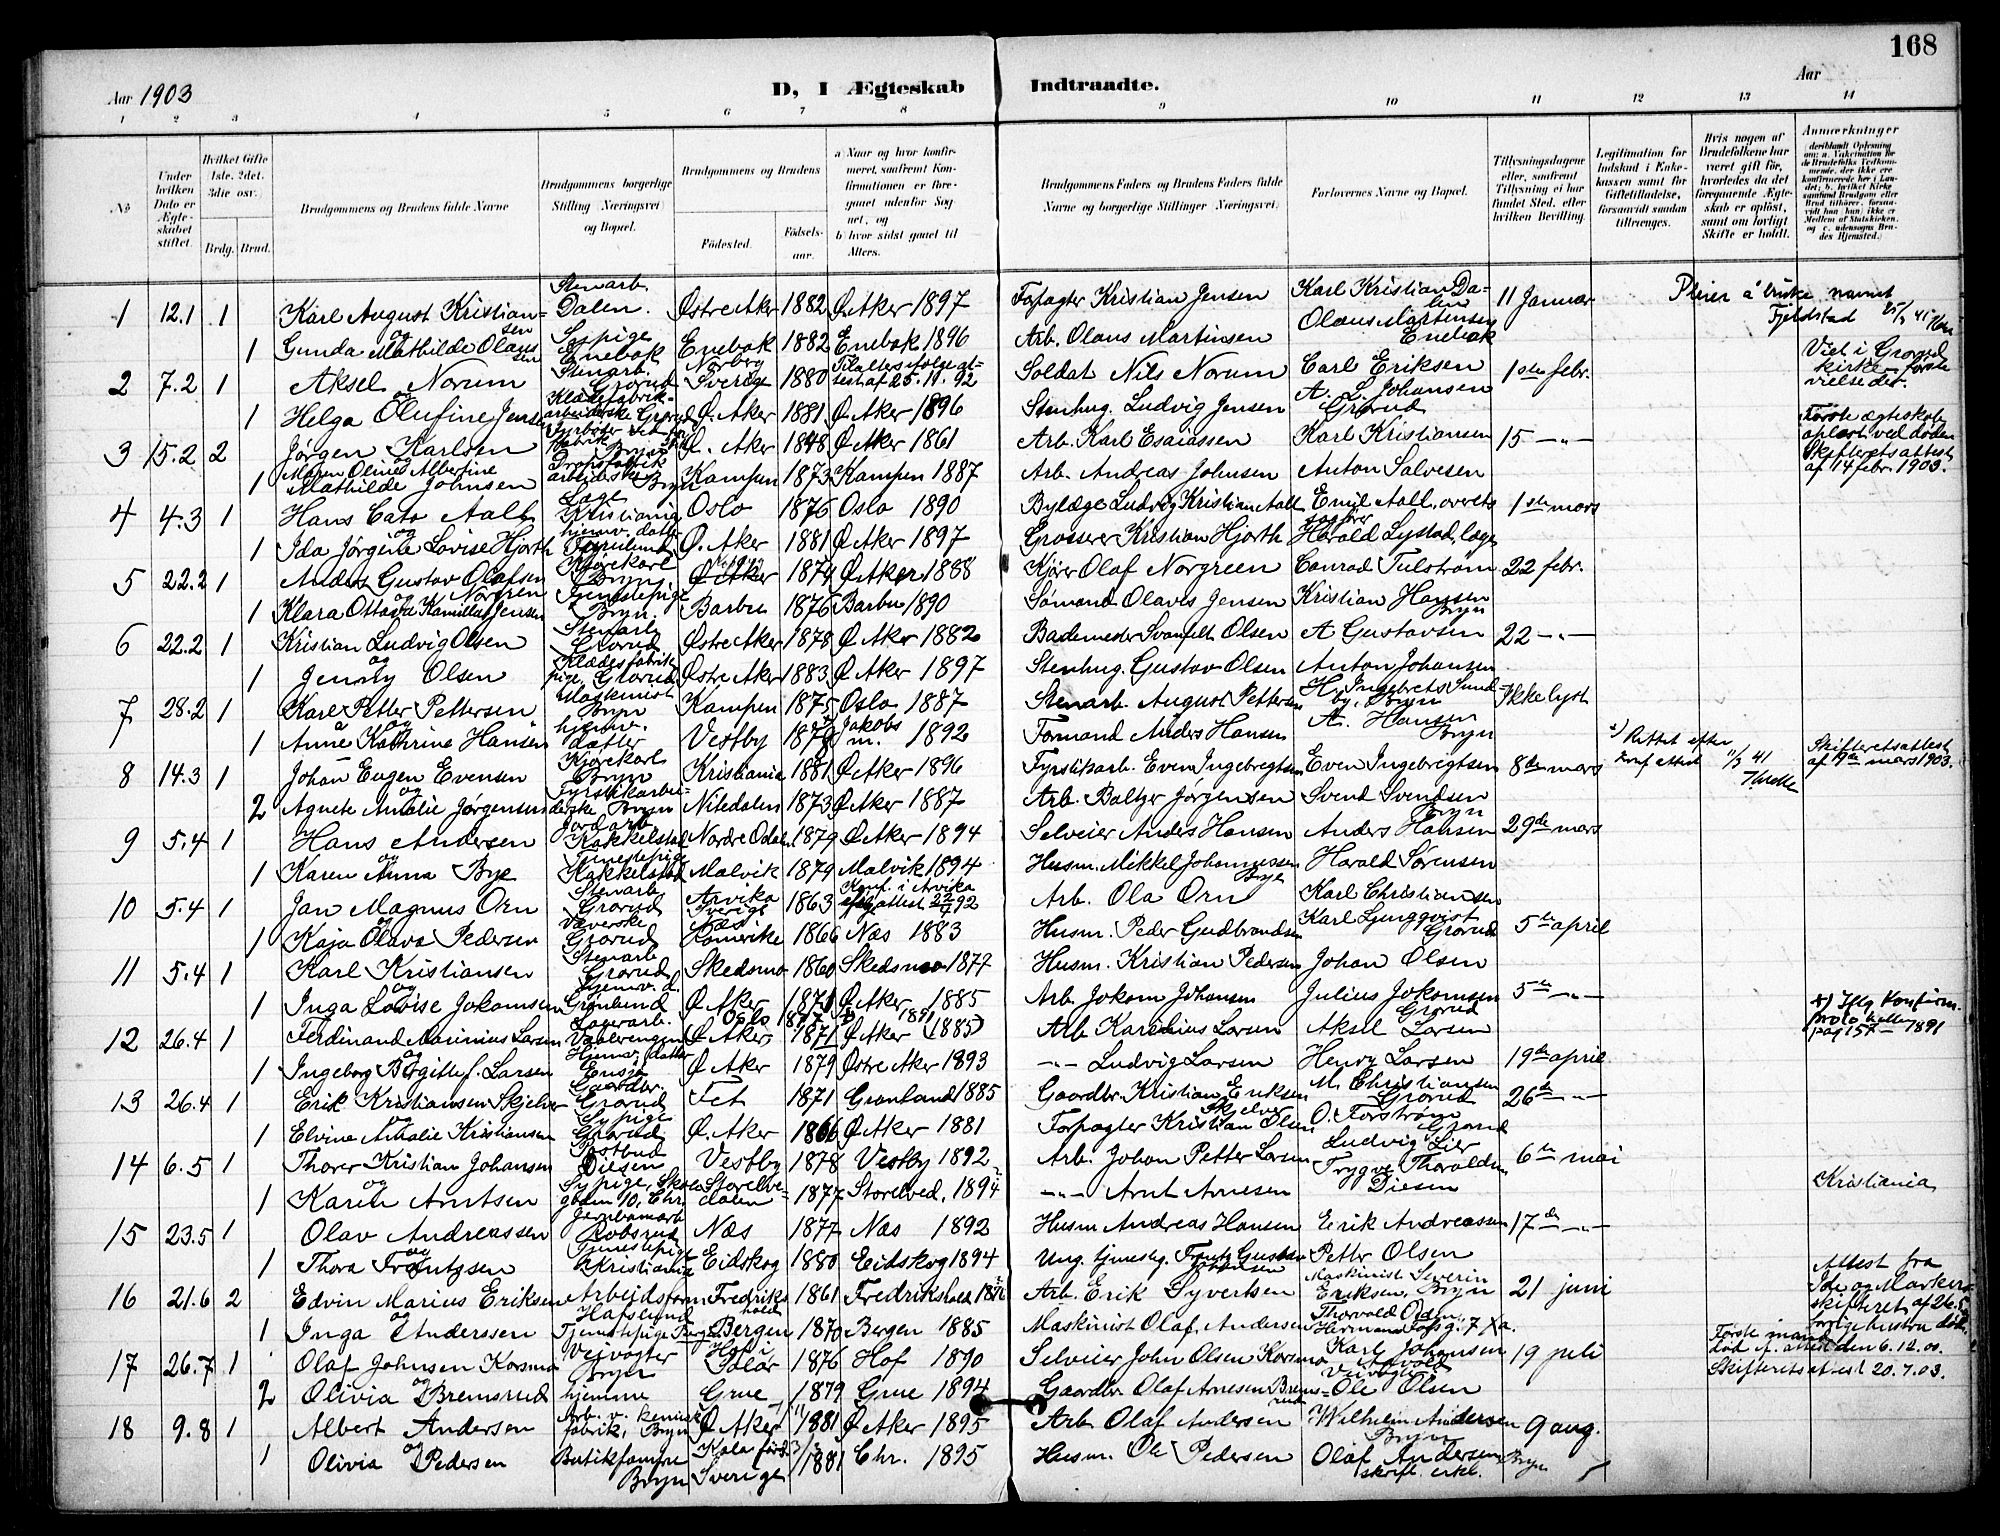 168
Aar 1903
D, I Ægteskab Indtraadte.
Aar
1 2 3 4 5 6 7 8 9 10 11 12 13 14
No
Under hvilken Dato er Ægteskabet stiftet.
Hvilket Gifte 1ste, 2det, 3die osv.
Brdg. Brud.
Brudgommens og Brudens fulde Navne
Brudgommens borgerlige Stilling (Næringsvei) og Bopæl.
Brudgommens og Brudens
Fødested. Fødselsaar.
a) Naar og hvor konfirmeret, saafremt Konfirmationen er foregaaet udenfor Sognet, og
b) hvor sidst gaaet til Alters.
Brudgommens Faders og Brudens Faders fulde Navne og borgerlige Stillinger (Næringsvei)
Forlovernes Navne og Bopæl.
Tillysningsdagene eller, saafremt Tillysning ei har fundet Sted, efter hvilken Bevilling.
Legitimation for Indskud i Enkekassen samt for Giftetilladelse, forsaavidt saadan tiltrænges.
Hvis nogen af Brudefolkene har været gift før, hvorledes da det foregaaende Ægteskab er opløst, samt om lovligt Skifte er holdt.
Anmærkninger
1 12.1 1 Karl August Kristiansen Stenarb Dalen. Østre Aker 1882 Ø Aker 1897 Forpagter Kristian Jensen Karl Kristian Dalen 11 Januar Pleier å bruke navnet Fjeldstad
og
1 Gunda Mathilde Olaussen Sypige Enebak Enebak 1882 Enebak 1896 Arb. Olaus Martinsen Olaus Martinsen Enebak
2 7.2 1 Aksel Norum Stenarb. Grorud Norberg Sverige 1880 Til alters ifølge attest af 25.11.92 Soldat Nils Norum Carl Eriksen 1ste febr. Viet i Grorud kirke første vielse der.
og
1 Helga Olufine Jensen Klædefabrikarbeiderske Grorud Ø. Aker 1881 Ø Aker 1896 Stenhug. Ludvig Jensen A. L. Johansen Grorud
3 15.2 2 Jørgen Karlsen Bryn Ø. Aker 1848 Ø Aker 1861 Arb. Karl Esaiassen Karl Kristiansen 15 —"— Første ægteskab opløst ved døden Skifteretsattest af 14 febr 1903.
og
1 Maren Oline Albertine Mathilde Johnsen arbeiderske Bryn Kampen 1873 Kampen 1887 Arb. Andreas Johnsen Anton Salvesen
4 4.3 1 Hans Cato Aall Læge Kristiania Oslo 1876 Oslo 1890 Bylæge Ludvig Kristian Aall Emil Aall, overretssagfører 1ste mars
og
1 Ida Jørgine Lovise Hjorth hjemv. datter Ø. Aker 1881 Ø Aker 1897 Grosserer Kristian Hjorth Harald Lystad, læge
5 22.2 1 Anders Gustav Olafsen Norgren Kjørekarl Bryn. Ø Aker 1874 Ø Aker 1888 Kjører Olaf Norgreen Conrad Tulstrøm 22 febr.
og
1 Klara Ottava Kamilla Jensen Tjenestepige Bryn. Barbu 1876 Barbu 1890 Sømand Olaves Jensen Kristian Hansen Bryn
6 22.2 1 Kristian Ludvig Olsen Stenarb Grorud Østre Aker 1878 Ø Aker 1882 Bademester Svanfelt Olsen A Gustavsen 22 —"—
og
1 Jenny Olsen Klædesfabrikpige, Grorud Østre Aker 1883 Ø Aker 1897 Stenhug. Gustav Olsen Anton Johansen
7 28.2 1 Karl Petter Pettersen Maskinist Bryn Kampen 1875 Oslo 1887 Stenarb. August Pettersen H. Ingebrets Sundby, Bryn Ikke lyst
og
1 Anne Kathrine Hansen hjemv. datter Vestby 1878 Jakobs m. 1892 Formand Anders Hansen A. Hansen Bryn
8 14.3 1 Johan Eugen Evensen Kjørekarl Bryn Kristiania 1881 Ø Aker 1896 Fyrstikarb. Even Ingebregtsen Even Ingebrigtsen 8de mars Rettet efter 11/3 41 Skifteretsattest af 9de mars 1903.
og
2 Agnete Amalie Jørgensen Fyrstikarbeiderske, Bryn Nitedalen 1873 Ø Aker 1887 Arb. Baltzer Jørgensen Svend Svendsen Bryn
9 5.4 1 Hans Andersen Jordarb Kakkelstad Nordre Odalen 1879 Ø Aker 1894 Selveier Anders Hansen Anders Hansen 29de mars
og
1 Karen Anna Bye Tjenestepige Kakkelstad Malvik 1879 Malvik 1894 Husm. Mikkel Johannessen Bye Harald Sørensen
10 5.4 1 Jan Magnus Orn Stenarb Grorud Arvika Sverige 1863 Konf. i Arvika Arb. Ola Orn Karl Christiansen
og
1 Kaja Olava Pedersen Væverske Grorud Næs Romerike 1866 Næs 1883 Husm. Peder Gudbrandsen Karl Ljungqvist Grorud 5te april
11 5.4 1 Karl Kristiansen Stenarb Grorud Skedsmo 1860 Skedsmo 1877 Husm. Kristian Pedersen Johan Olsen
og
1 Inga Lovise Jokomsen hjemv. d. Grønlund Ø Aker 1871 Ø Aker 1885 Arb. Jokom Johansen Julius Jokomsen Grorud 5te —"—
12 26.4 1 Ferdinand Marinius Larsen Lagerarb. Vaalerengen Ø Aker 1871 Ø Aker (1885) Arb Karelius Larsen Aksel Larsen pag 157 — 1891
og
1 Ingeborg Birgitte f. Larsen Hjemv. datter Ensjø Ø Aker 1879 Østre Aker 1893 —"— Ludvig Larsen Henry Larsen 19de april
13 26.4 1 Erik Kristiansen Skjelver Gaardbr. Grorud Fet 1871 Grønland 1885 Gaardbr. Kristian Eriksen Skjelver M. Christiansen Grorud 26de —"—
1 Elvine Nathalie Kristiansen Sypige Grorud. Ø. Aker 1866 Ø Aker 1881 Forpagter Kristian Olsen O. Forstrøm Grorud
14 6.5 1 Thorer Kristian Johansen Postbud Diesen Vestby 1878 Vestby 1892 Arb. Johan Petter Larsen Ludvig Lier 6te mai
og
1 Karen Arntsen Sypige, Storelvedalen 1877 Storelved. 1894 —"— Arnt Arnesen Trygve Thoraldsen Diesen Kristiania
15 23.5 1 Olav Andreassen Jernbanearb Robsrud Næs 1877 Næs 1892 Husm Andreas Hansen Erik Andreassen 17de —"—
og
1 Thora Frantzsen Tjenestepige Kristiania Eidskog 1880 Eidskog 1894 Ung. tjenestg. Frantz Gustav Johansen Petter Olsen
16 21.6 2 Edvin Marius Eriksen Arbejdsform Hafslund Fredrikshald 1861 Fredrikshald Arb. Erik Syvertsen Maskinist Severin Eriksen, Bryn 21 juni Attest fra Ide og Marker skifteret af 26.5
og
1 Inga Anderssen Tjenestepige Bergen 1870 Bergen 1885 Maskinist Olaf Andersen Thorvald Olsen,
17 26.7 1 Olaf Johnsen Korsmo Veivogter Bryn Hof i Solør 1876 Hof 1890 Selveier John Olsen Korsmo Karl Johansen Veivogter 19 juli Første mand død af. attest den 6.12.01. Skifteretsattest 20.7.03.
og
2 Olivia Bremsrud hjemme Grue 1879 Grue 1894 Gaardbr Olaf Arnesen Bremsrud Ole Olsen
18 9.8 1 Albert Andersen Arb. v. kemisk fabrik, Bryn Ø Aker 1881 Ø Aker 1895 Arb Olaf Andersen Wilhelm Andersen Bryn 9 aug.
og
1 Olivia Pedersen Butikjomfru Bryn Sverige 1881 Chr. 1895 Husm. Ole Pedersen Olaf Andersen Bryn skrift. erkl.